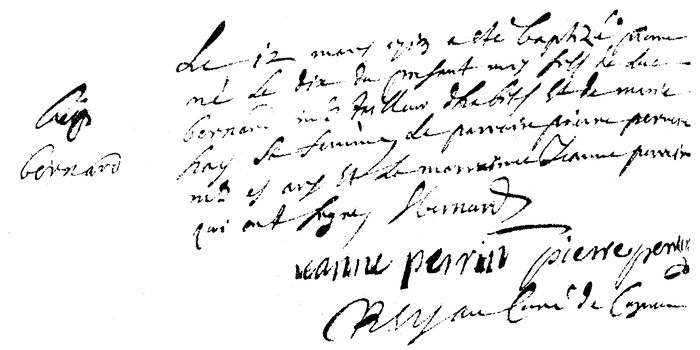 Le 12 mars 1713 a été baptizé pierre
né le dix du present mois fils de Luc
bernard md tailleur d'habits et de marie
sa femme, Le parrain pierre perrin
md es ars et la marrainne Jeanne perrin
qui ont signez Bernard
bernard
jeanne perrin pierre perrin
Curé de